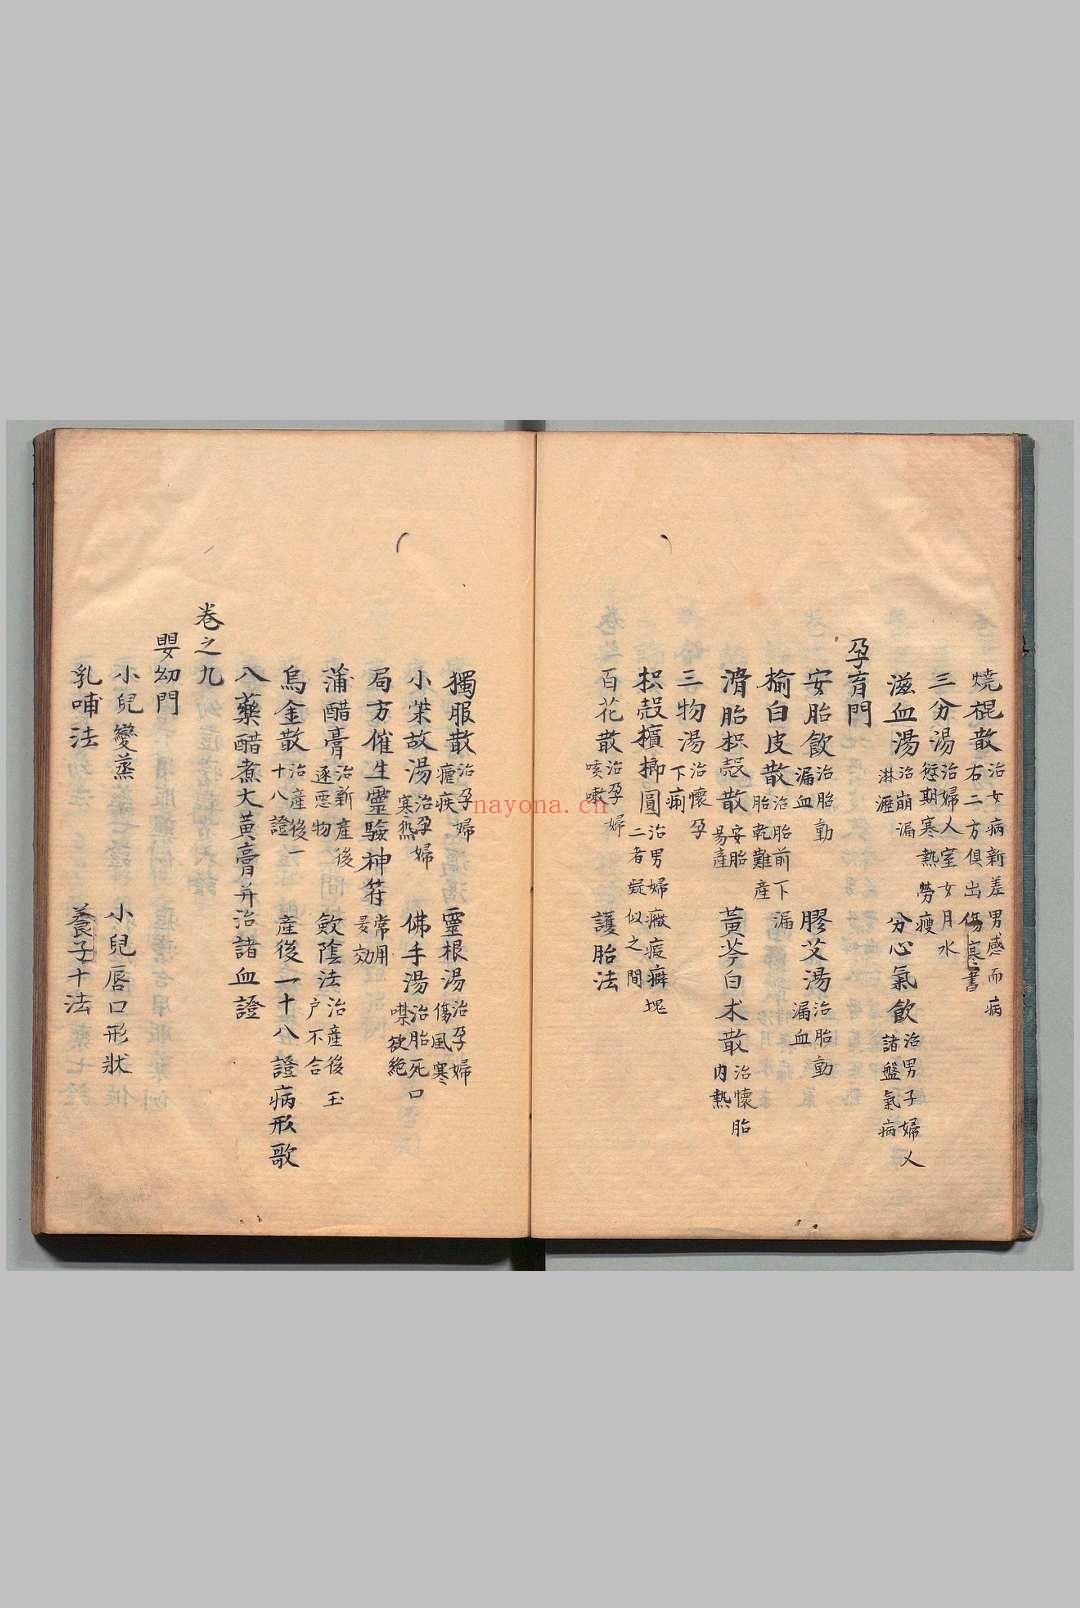 燒裩散 治女病新差男感而病 右二方俱出傷寒書
三分湯 治婦人室女月水愆期寒熱勞瘦
滋血湯 治崩漏淋瀝 分心氣飲 治男子婦人諸盤氣病
孕育門
安胎飲 治胎動漏血 膠艾湯 治胎動漏血
榆白皮散 治胎前下漏胎乾難產
滑胎枳殼散 安胎易產 黃芩白朮散 治懷胎內熱
三物湯 治懷孕下痢
枳殼檳榔圓 治男婦癥瘕癖塊二者疑似之間
百花散 治孕婦咳嗽 護胎法
獨服散 治孕婦瘧疾 靈根湯 治孕婦傷風寒
小柴故湯 治孕婦寒熱 佛手湯 治胎死口噤欲絕
局方催生靈驗神符 常用是効
蒲醋膏 治新產後逐惡物 斂陰法 治產後玉户不合
烏金散 治產後一十八證 產後一十八證病形歌
八藥醋煮大黃膏并治諸血證
卷之九
嬰幼門
小兒變蒸 小兒唇口形狀
乳哺法 養子十法
nayona.cn